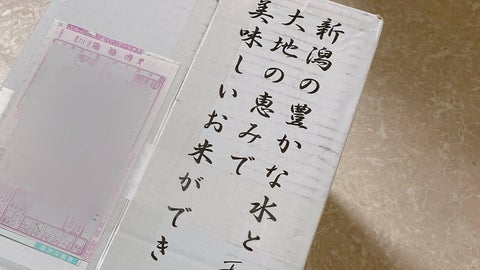 新潟の豊かな水と
大地の恵みで
美味しいお米ができ